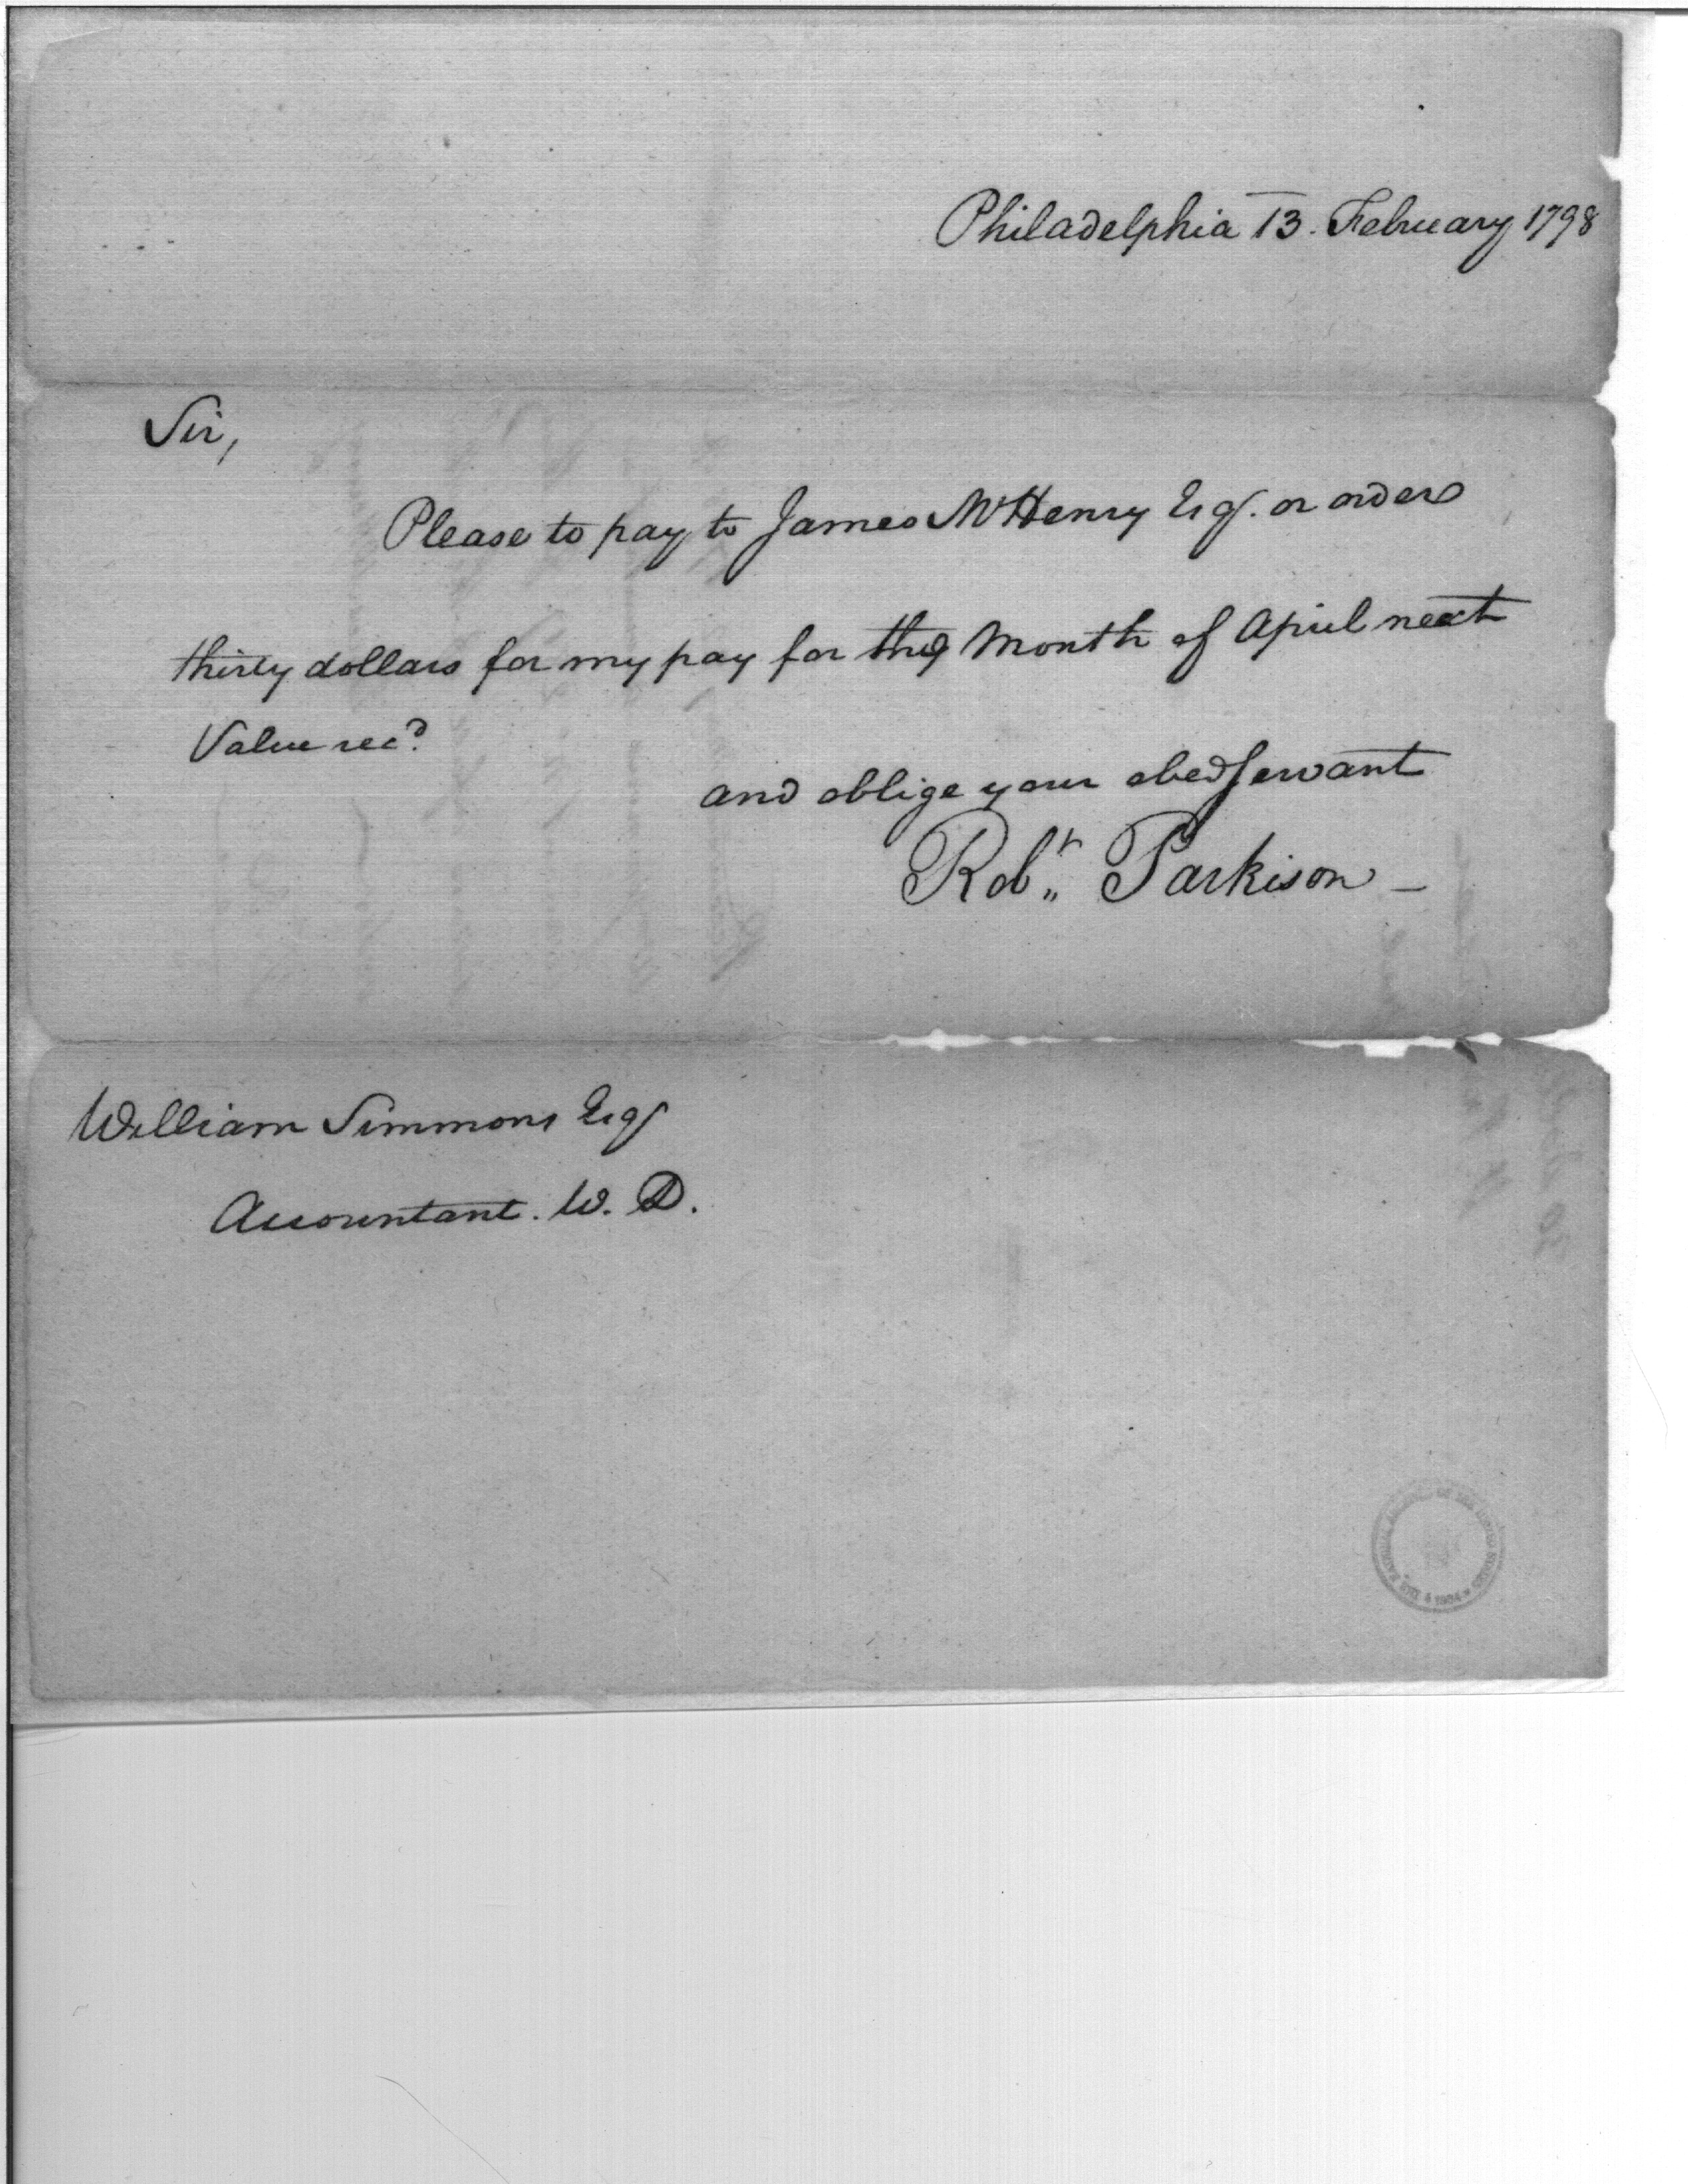 Philadelphia 13. February 1798
Sir,
Please to pay to James McHenry Esq. or order
thirty dollars for my pay for the Month of April next
Value recd.
and oblige your obed servant
Robt. Parkison
William Simmons Esq
Accountant. W. D.